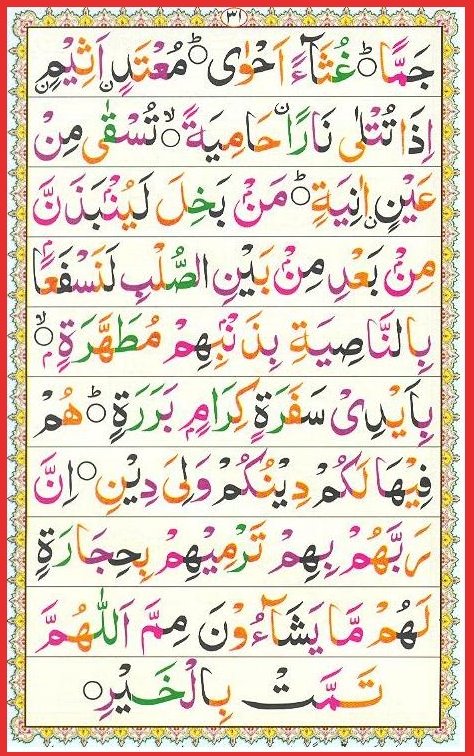 ٣١
جَمًّاؕ○ غُثَآءً اَحْوٰىؕ○ مُعْتَدٍ اَثِيْمٍۙن
اِذَا تُتْلٰى نَارًا حَامِيَةًۙ○ تُسْقٰى مِنْ
عَيْنٍ اٰنِيَةٍؕ○ مَنْۢ بَخِلَ لَيُنْۢبَذَنَّ
مِنْۢ بَعْدِ مِنْۢ بَيْنِ الصُّلْبِ لَنَسْفَعًۢا
بِالنَّاصِيَةِ بِذَنْۢبِهِمْ مُطَهَّرَةٍۭۙ○
بِاَيْدِىْ سَفَرَةٍ كِرَامٍۭ بَرَرَةٍؕ○ هُمْ
فِيْهَا لَكُمْ دِيْنُكُمْ وَلِىَ دِيْنِ○ اِنَّ
رَبَّهُمْ بِهِمْ تَرْمِيْهِمْ بِحِجَارَةٍ
لَهُمْ مَّا يَشَآءُوْنَ مِمَّ اَللّٰهُمَّ
تَمَّتْ بِالْخَيْرِ○